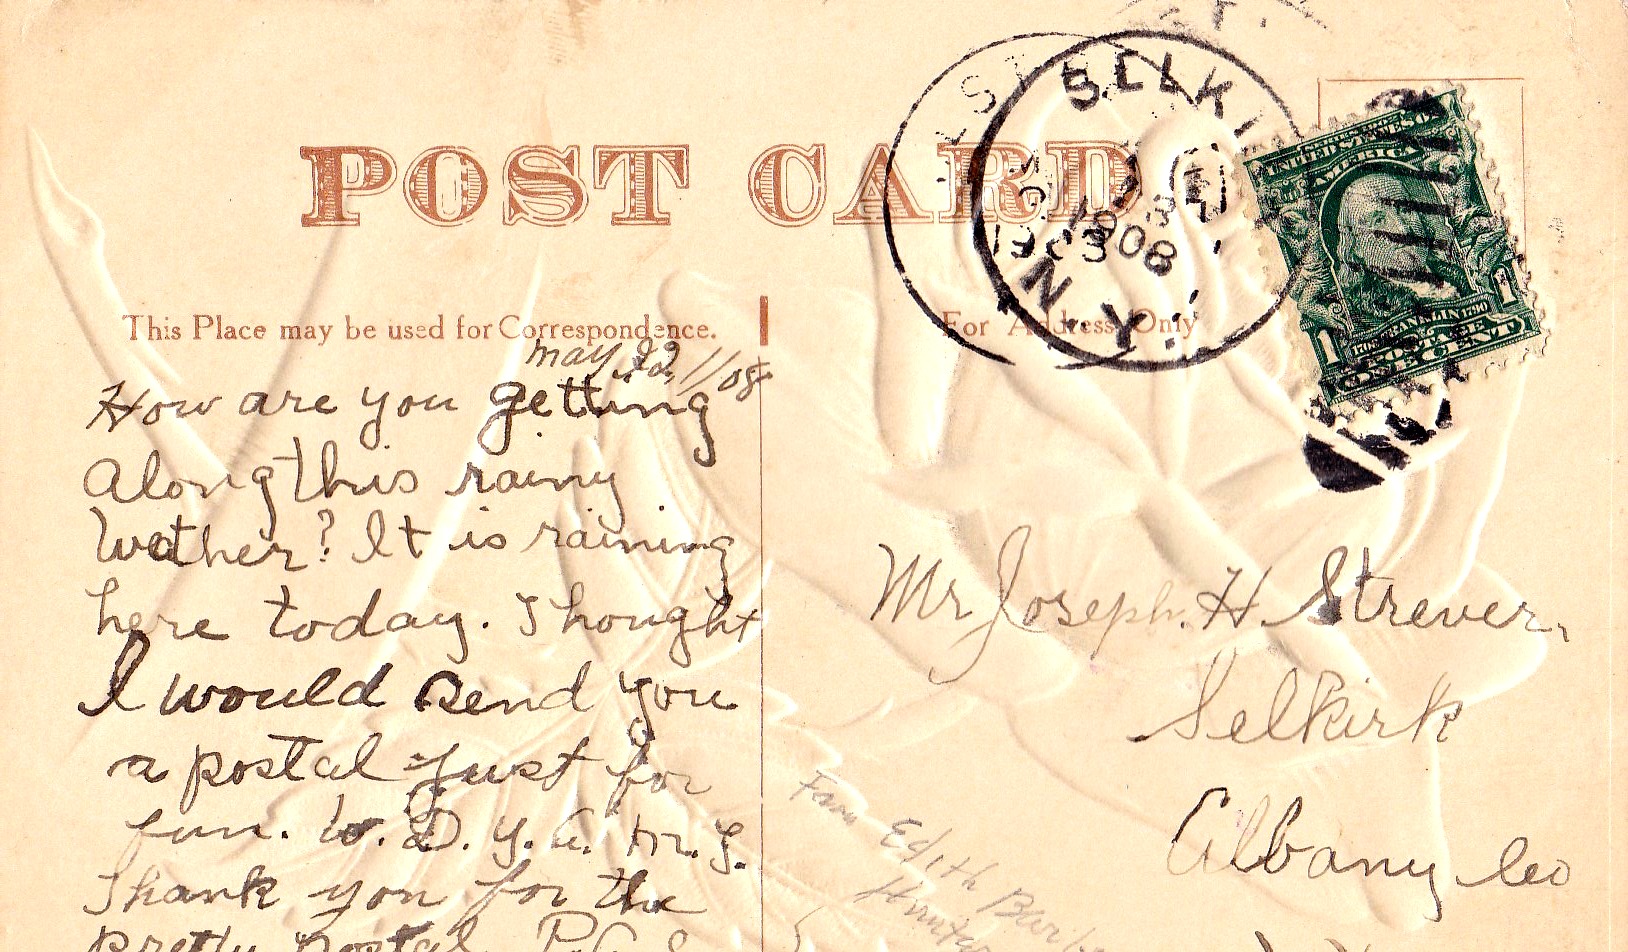 POST CARD
This Place may be used for Correspondence.
For Address Only
SELKI
N.Y.
1908
UNITED STATES OF
AMERICA
FRANKLIN
POSTAGE
1 ONE CENT 1
may 22, 1/08
How are you getting
along this rainy
wether? It is raining
here today. Thought
I would send you
a postal just for
fun. W. D. Y. G. M. Y.
Thank you for the
pretty postal. P.C.
Mr Joseph. H. Strever,
Selkirk
Albany Co
Edith